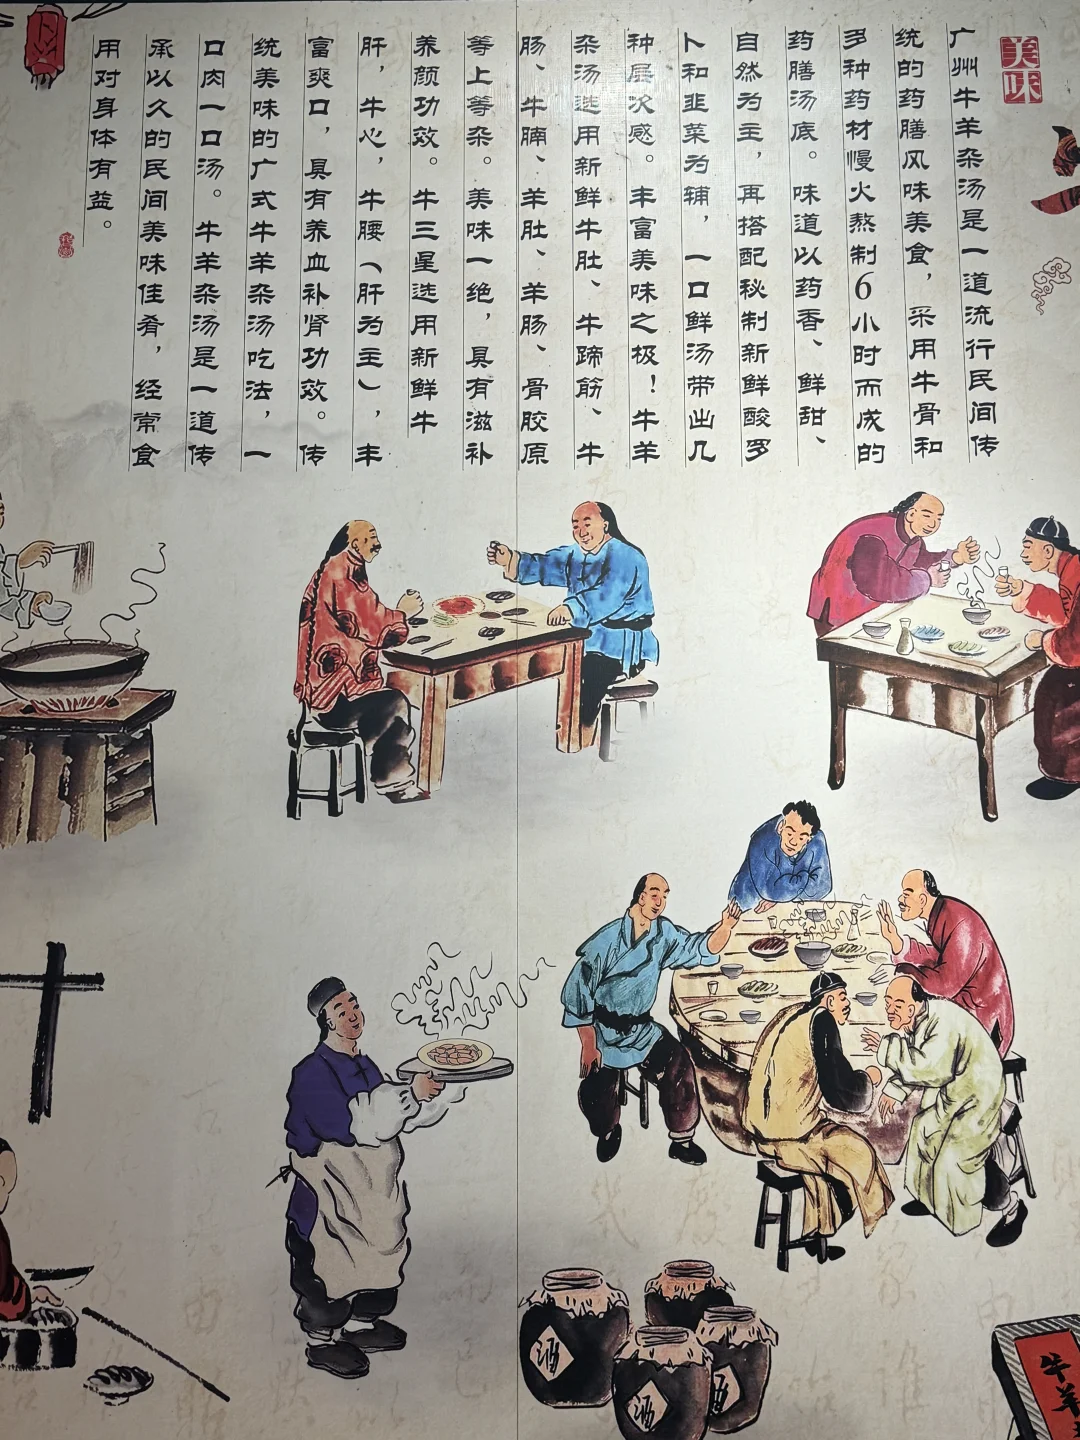 美味
广州牛羊杂汤是一道流行民间传
统的药膳风味美食，采用牛骨和
多种药材慢火熬制6小时而成的
药膳汤底。味道以药香、鲜甜、
自然为主，再搭配秘制新鲜酸罗
卜和韭菜为辅，一口鲜汤带出几
种层次感。丰富美味之极！牛羊
杂汤选用新鲜牛肚、牛蹄筋、牛
肠、牛腩、羊肚、羊肠、骨胶原
等上等杂。美味一绝，具有滋补
养颜功效。牛三星选用新鲜牛
肝，牛心，牛腰（肝为主），丰
富爽口，具有养血补肾功效。传
统美味的广式牛羊杂汤吃法，一
口肉一口汤。牛羊杂汤是一道传
承以久的民间美味佳肴，经常食
用对身体有益。
酒
酒
酒
牛羊